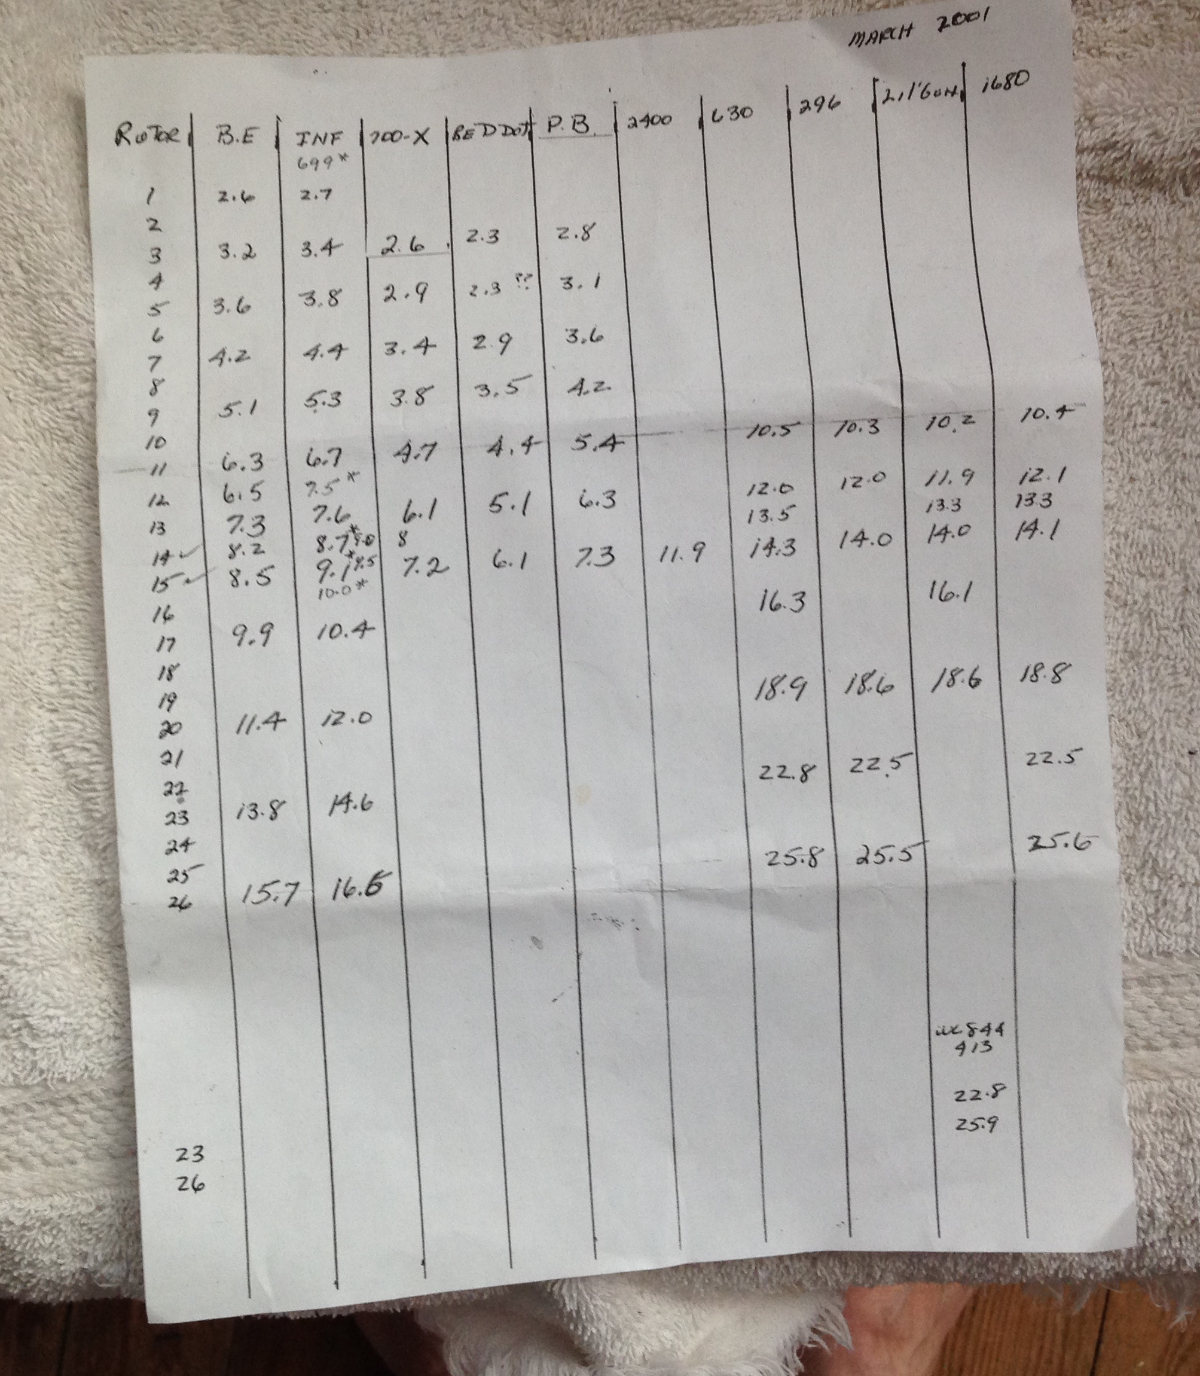 MARCH 2001
ROTOR B.E INF 700-X RED DOT P.B. 2400 630 296 Lil'GUN 1680
699*
1 2.6 2.7
2
3 3.2 3.4 2.6 2.3 2.8
4
5 3.6 3.8 2.9 2.3 ?? 3.1
6
7 4.2 4.4 3.4 2.9 3.6
8
9 5.1 5.3 3.8 3.5 4.2
10 10.5 10.3 10.2 10.4
11 6.3 6.7 4.7 4.4 5.4
12 6.5 7.5* 12.0 12.0 11.9 12.1
13 7.3 7.6 6.1 5.1 6.3 13.5 13.3 13.3
14 ✓ 8.2 8.7* 9.0 8 14.3 14.0 14.0 14.1
15 ✓ 8.5 9.1* 9.5 7.2 6.1 7.3 11.9
10.0*
16 16.3 16.1
17 9.9 10.4
18
19 18.9 18.6 18.6 18.8
20 11.4 12.0
21
22 22.8 22.5 22.5
23 13.8 14.6
24
25 25.8 25.5 25.6
26 15.7 16.6
844
413
22.8
25.9
23
26